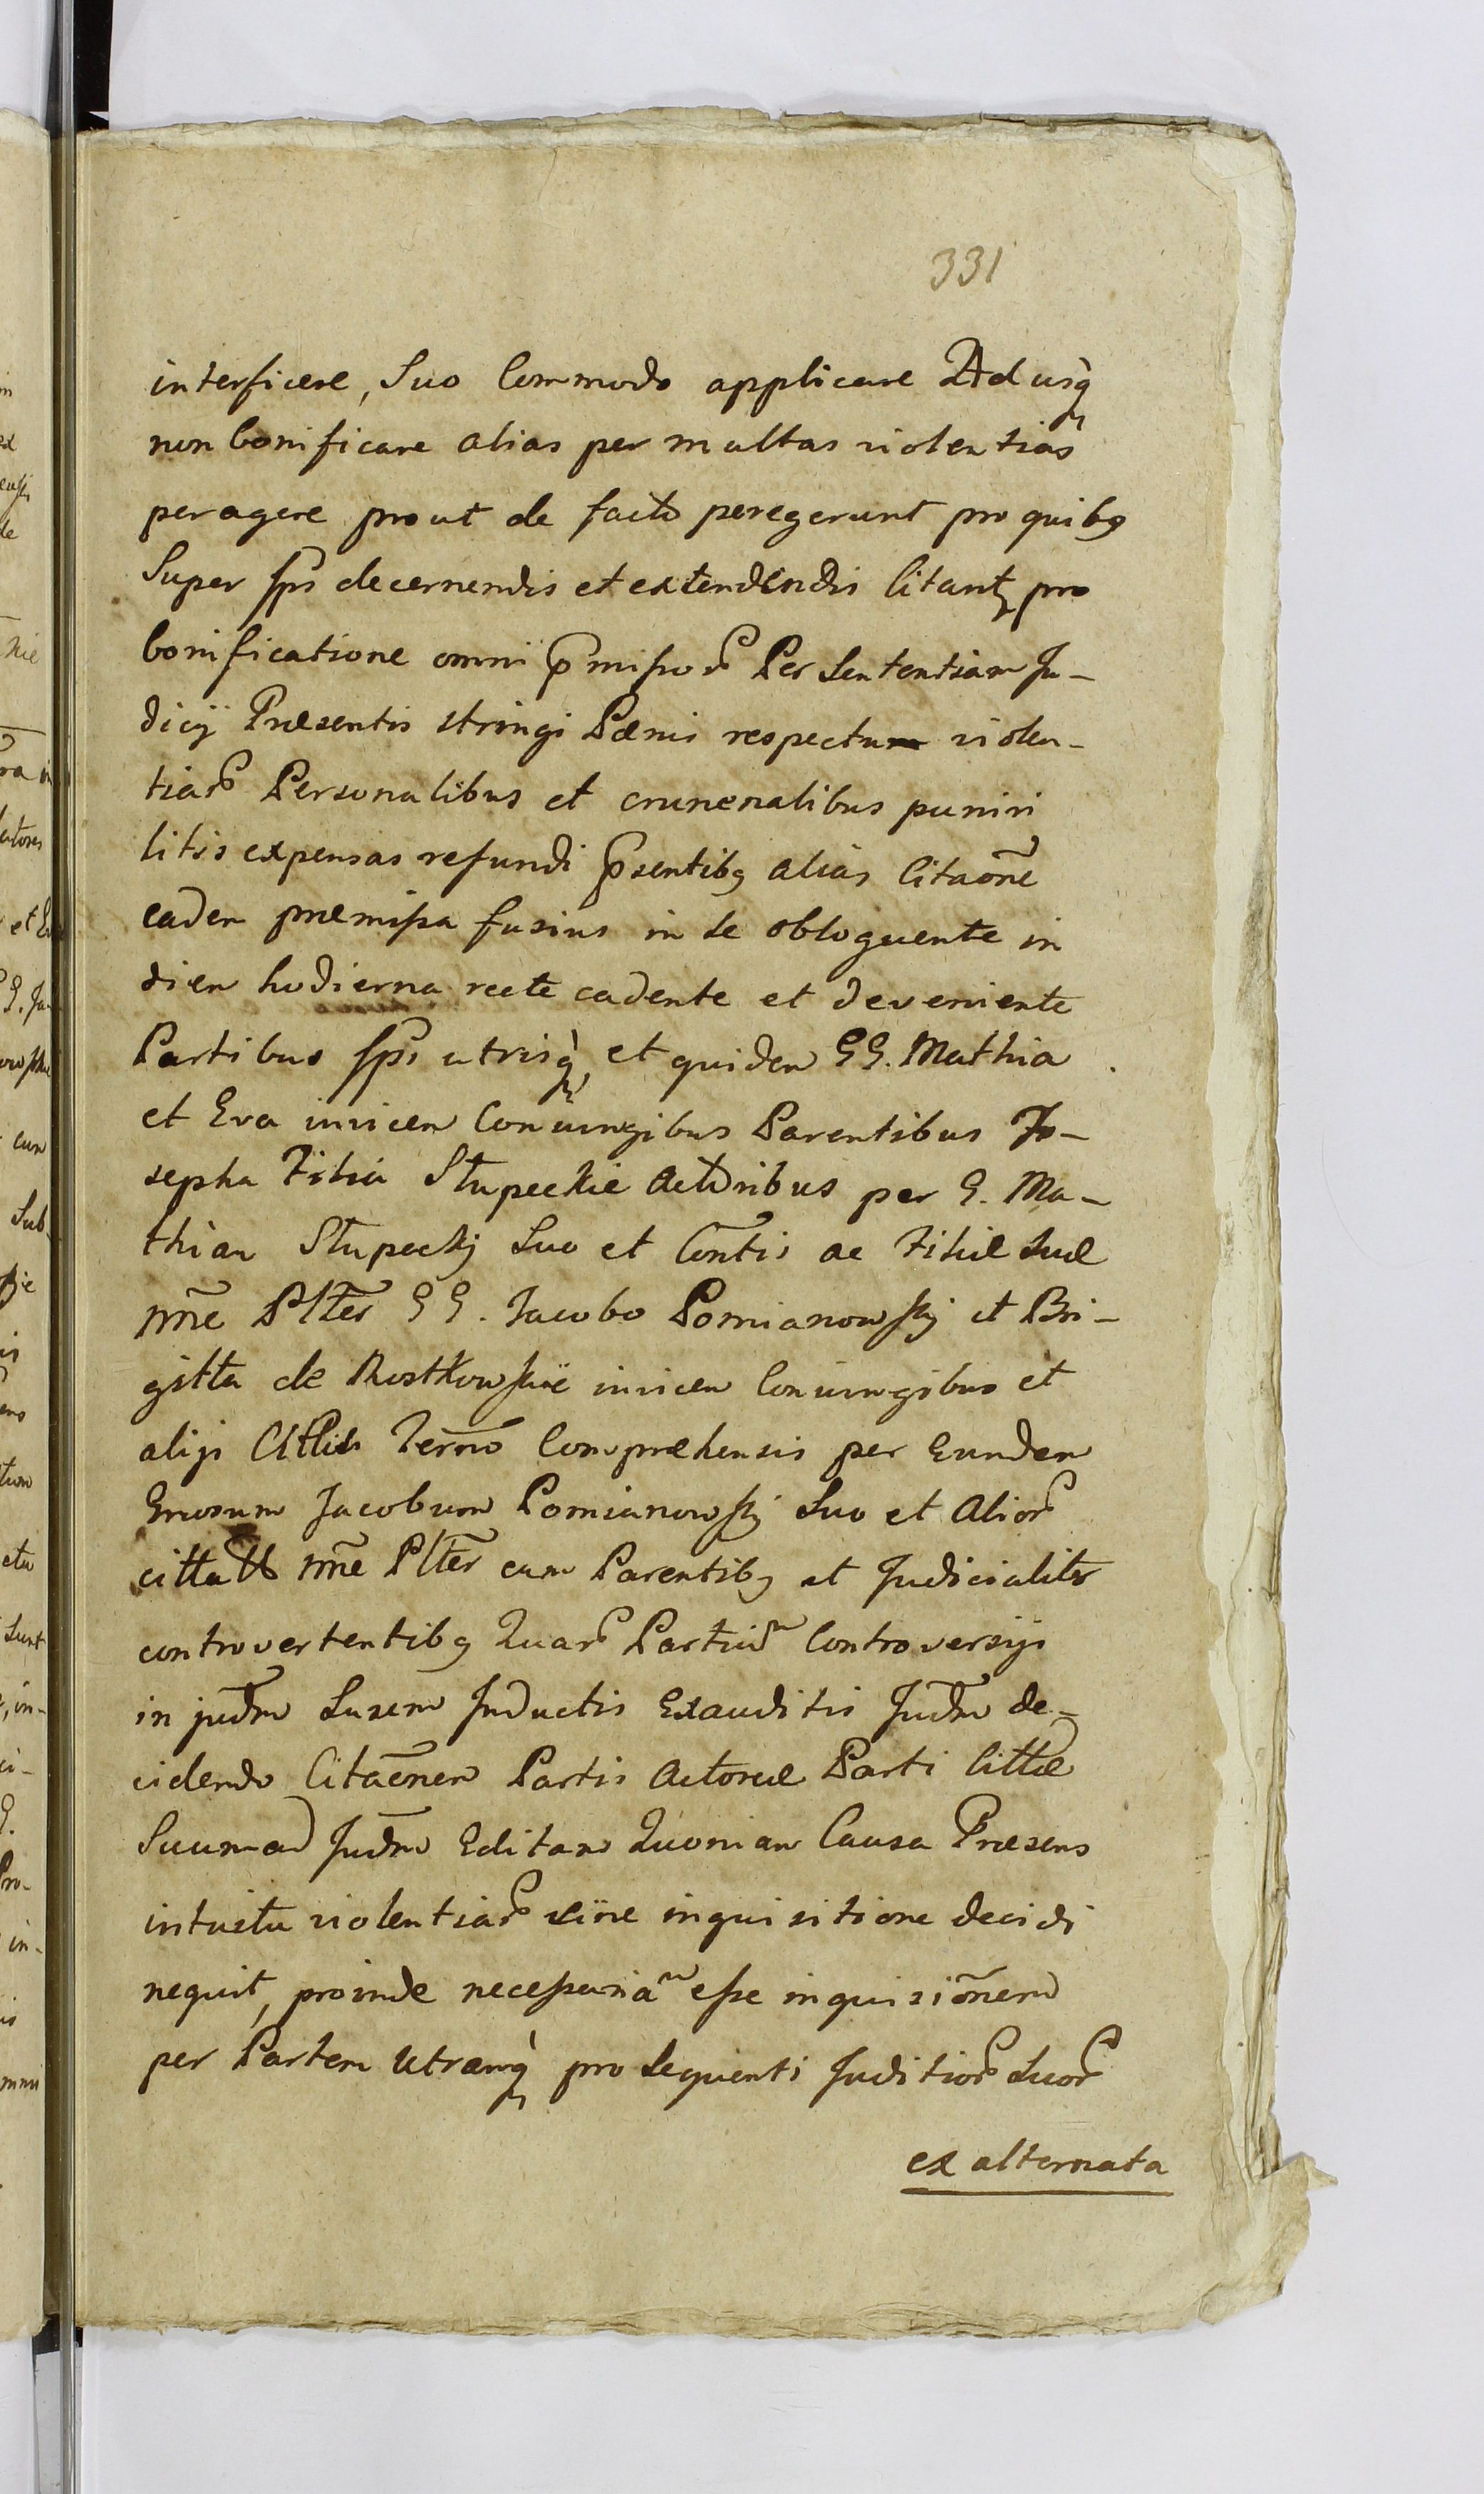 331
interficere, Suo Commodo applicare Adusq
non bonificare alias per multas violentias
peragere prout de facto peregerunt pro quibq
Super sps decernendis et extendendis Citantq pro
bonificatione omni pmissor Per Sententiam Ju-
dicÿ Præsentis stringi Pœnis respectu violen-
tiar Personalibus et crumenalibus puniri
litis expensas refundi psentibq alias Citaõne
eadem præmissa fusius in se obloquente in
diem hodierna recte cadente et deveniente
Partibus sps utrisq, et quidem GG. Mathia
et Eva invicem Coniungibus Parentibus Jo-
sepha Filia Słupeckie Actoribus per G. Ma-
thiam Słupecky Suo et Cõntis ac Filiæ suæ
nñe Plter GG. Jacobo Pomianowsky et Bri-
gitta de Rostkowskie invicem Coniungibus et
alijs Cittis Termo Compræhensis per Eundem
Gnrosum Jacobum Pomianowsky Suo et Alior
citta nñe Plter cum Parentibq et Judicialiter
controvertentibq Quar Partium Controversijs
in judm Susem Inductis Exauditis Judm de-
cidendo Citaõnem Partis Actoreæ Parti Cittæ
Suum ad Judm Editam Quoniam Causa Præsens
intuitu violentiar sine inquisitione decidi
nequit, proinde necessaria esse inquisiõnem
per Partem Utramq pro Sequenti Juditior Suor
ex alternata